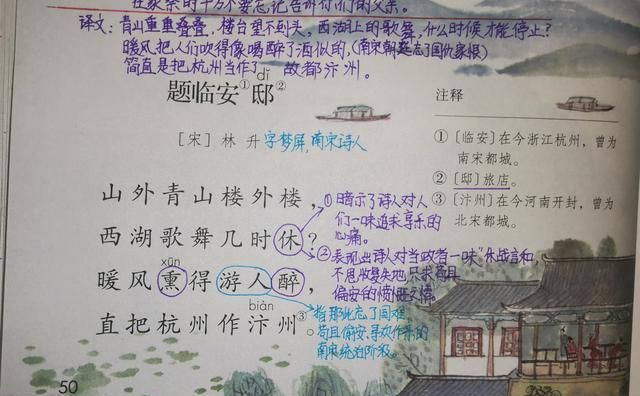 在家祭的千万不要忘记告诉你们的父亲。
译文:青山重重叠叠,楼台望不到头,西湖上的歌舞,什么时候才能停止?
暖风把人们吹得像喝醉了酒似的,(南宋朝廷忘了国仇家恨)
简直是把杭州当作了故都汴州。
dǐ
题临安①邸②
[宋] 林升 字梦屏,南宋诗人
山外青山楼外楼,
西湖歌舞几时休?
xūn
暖风熏得游人醉,
biàn
直把杭州作汴州③。
①暗示了诗人对人
们一味追求享乐的
心痛。
②表现出诗人对当政者一味"休战言和,
不思收复失地,只求苟且
偏安的愤慨之情。
指那些忘了国难,
苟且偏安、寻欢作乐的
南宋统治阶级。
注释
①〔临安〕在今浙江杭州,曾为
南宋都城。
②〔邸〕旅店。
③〔汴州〕在今河南开封,曾为
北宋都城。
50